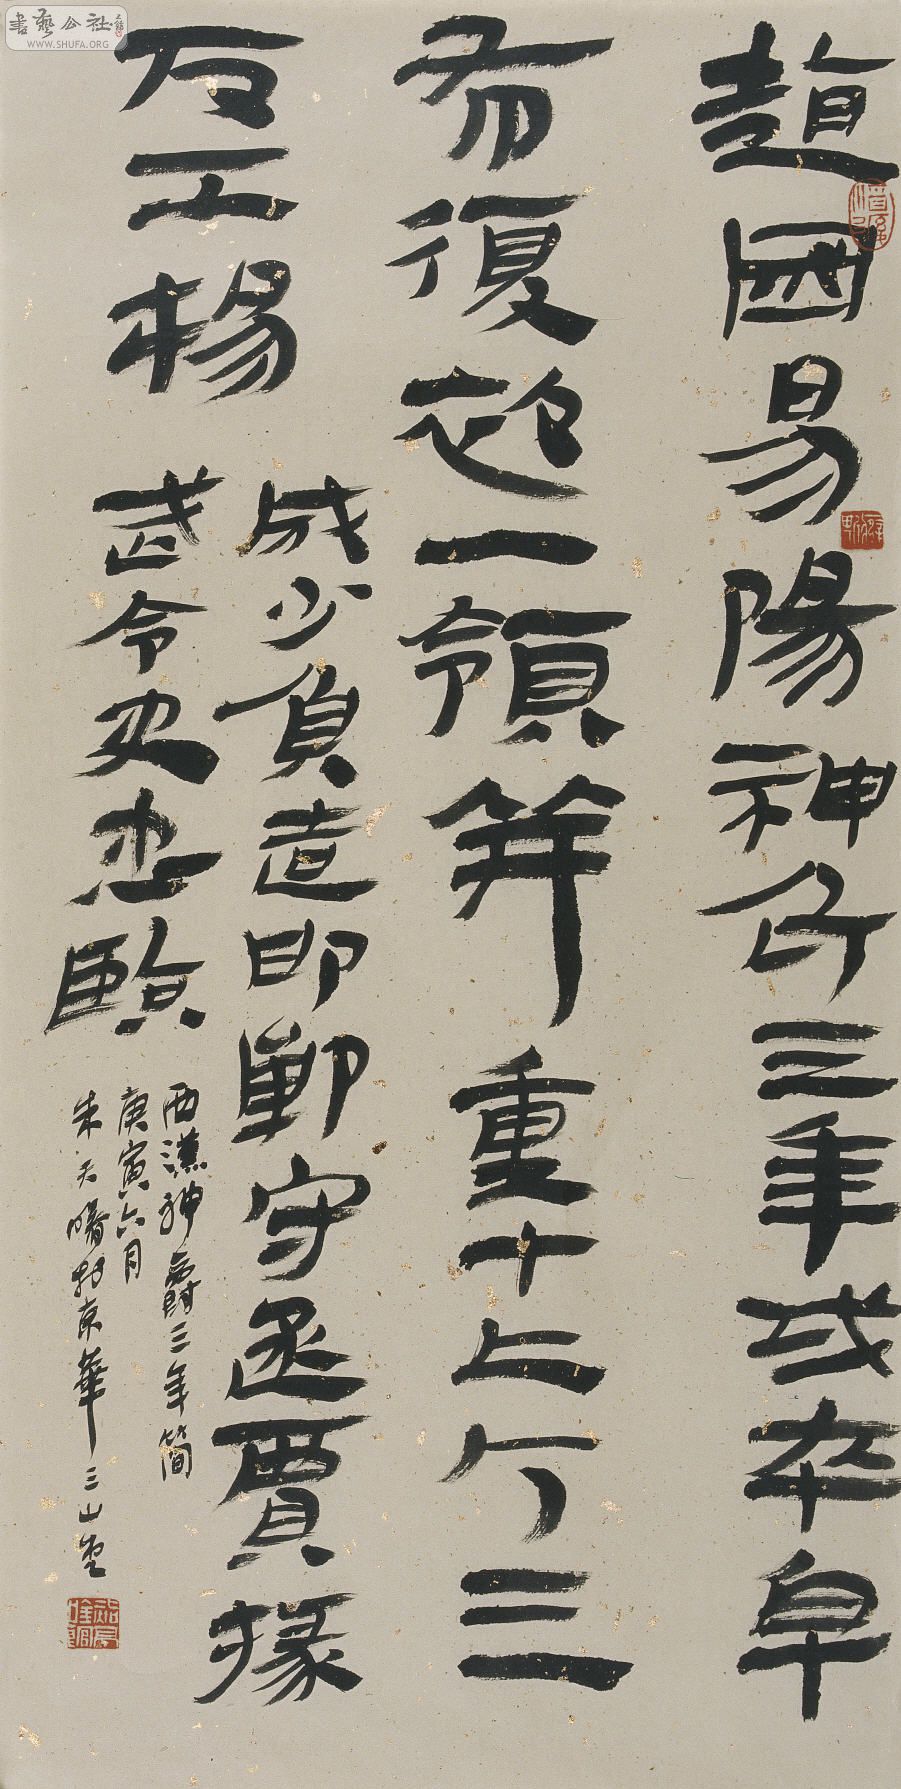 趙國易陽神爵三年戍卒皁
布復袍一領并重十上斤三
石工楊
成少負造即鄴守丞賈掾
武令史忠臨
西漢神爵三年簡
庚寅六月
朱天曙於京華三山堂
書藝公社
WWW.SHUFA.ORG